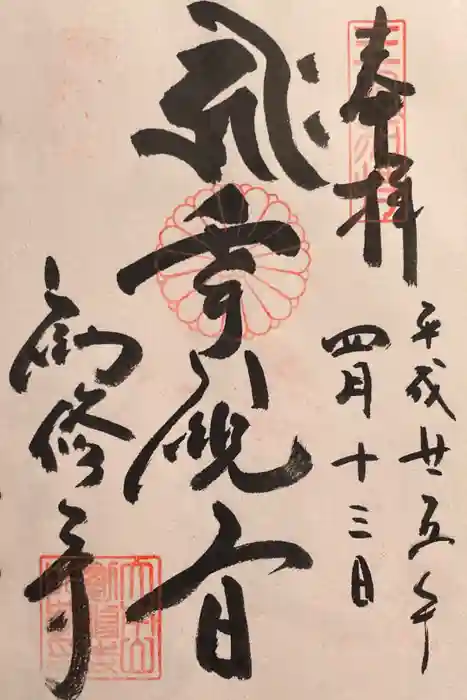 奉拝
平成廿五年
四月十三日
千手観音
勧修寺